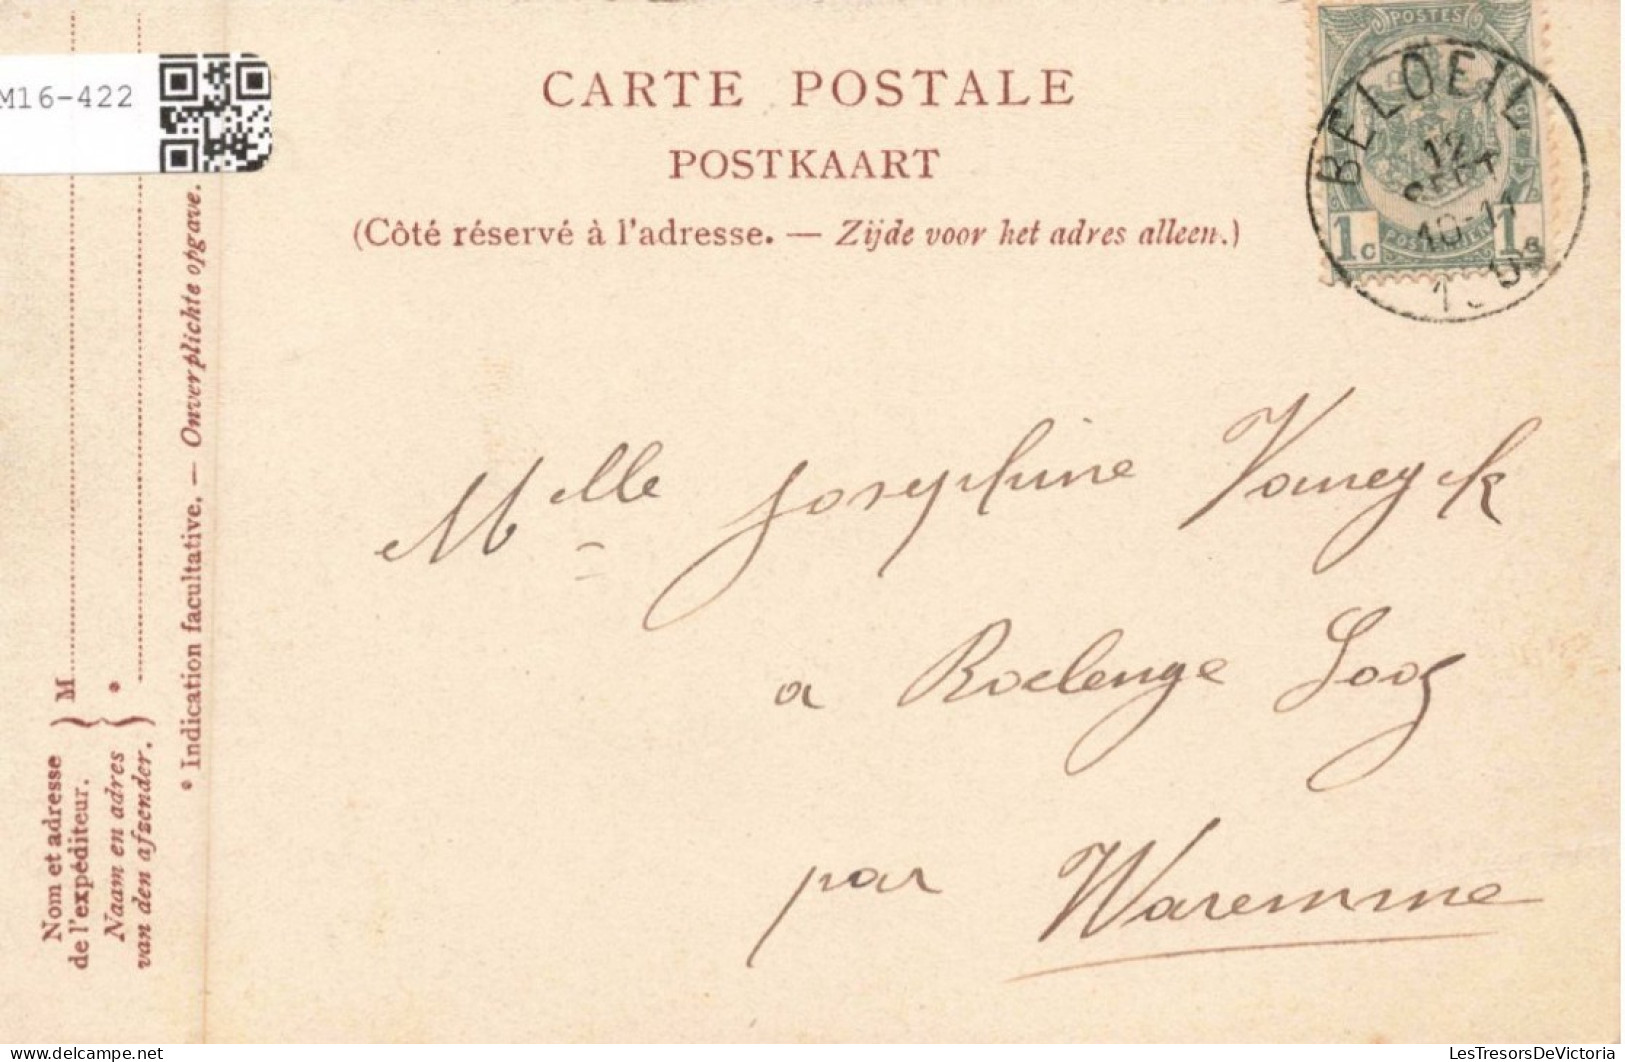 M16-422
CARTE POSTALE
POSTKAART
(Côté réservé à l'adresse. — Zijde voor het adres alleen.)
POSTES
1c 1c
BELOEIL
12
SEPT
10-11
Melle Josephine
à Roclenge Looz
par Waremme
Nom et adresse
de l'expéditeur.
Naam en adres
van den afzender.
M
*
* Indication facultative. — Onverplichte opgave.
LesTresorsDeVictoria.com
LesTresorsDeVictoria